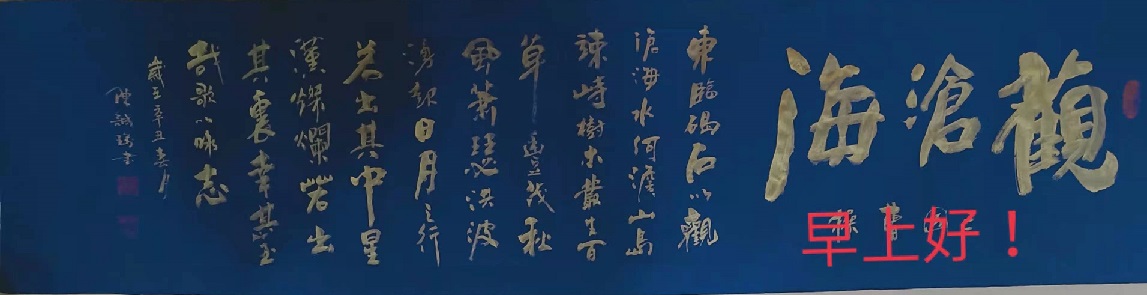 觀滄海
曹操
早上好！
東臨碣石以觀
滄海水何澹山島
竦峙樹木叢生百
草豐茂秋
風蕭瑟洪波
湧起日月之行
若出其中星
漢燦爛若出
其裏幸甚至
哉歌以咏志
歲在辛丑春月
書